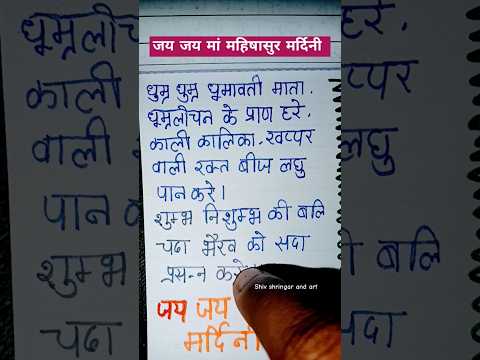 जय जय मां महिषासुर मर्दिनी
धुम्र धुम्र धूमावती माता,
धूम्रलोचन के प्राण हरे,
काली कालिका, खप्पर
वाली रक्त बीज लघु
पान करे।
शुम्भ निशुम्भ की बलि
चढा भैरव को सदा
प्रसन्न करे
Shiv shringar and art
जय जय
मर्दिनी